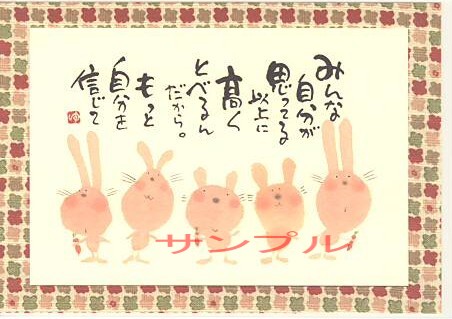 みんな
自分が
思ってる
以上に
高く
とべるん
だから。
もっと
自分を
信じて
サンプル